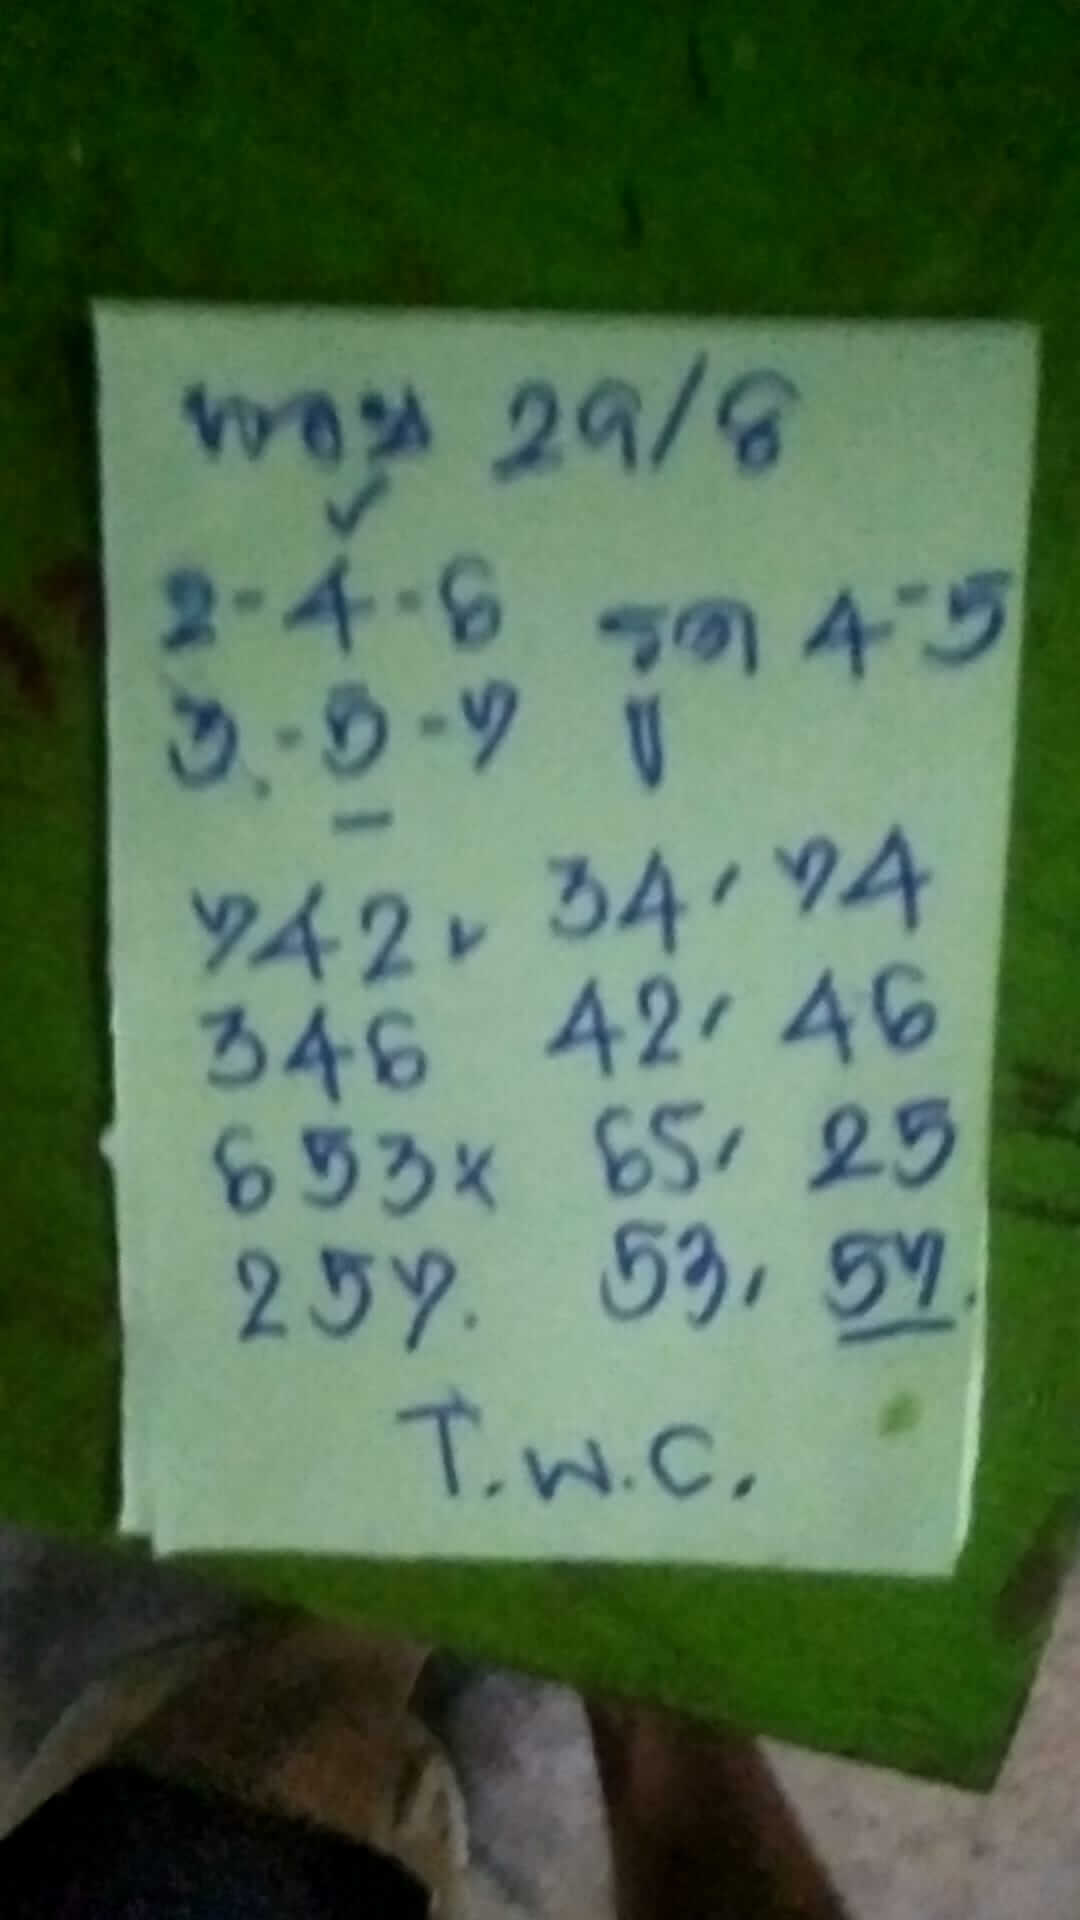 พฤหัส 29/8
2-4-6 รูด 4-5
3.-5-7
742 34, 74
346 42, 46
653x 65, 25
257. 53, 57.
T.W.C.